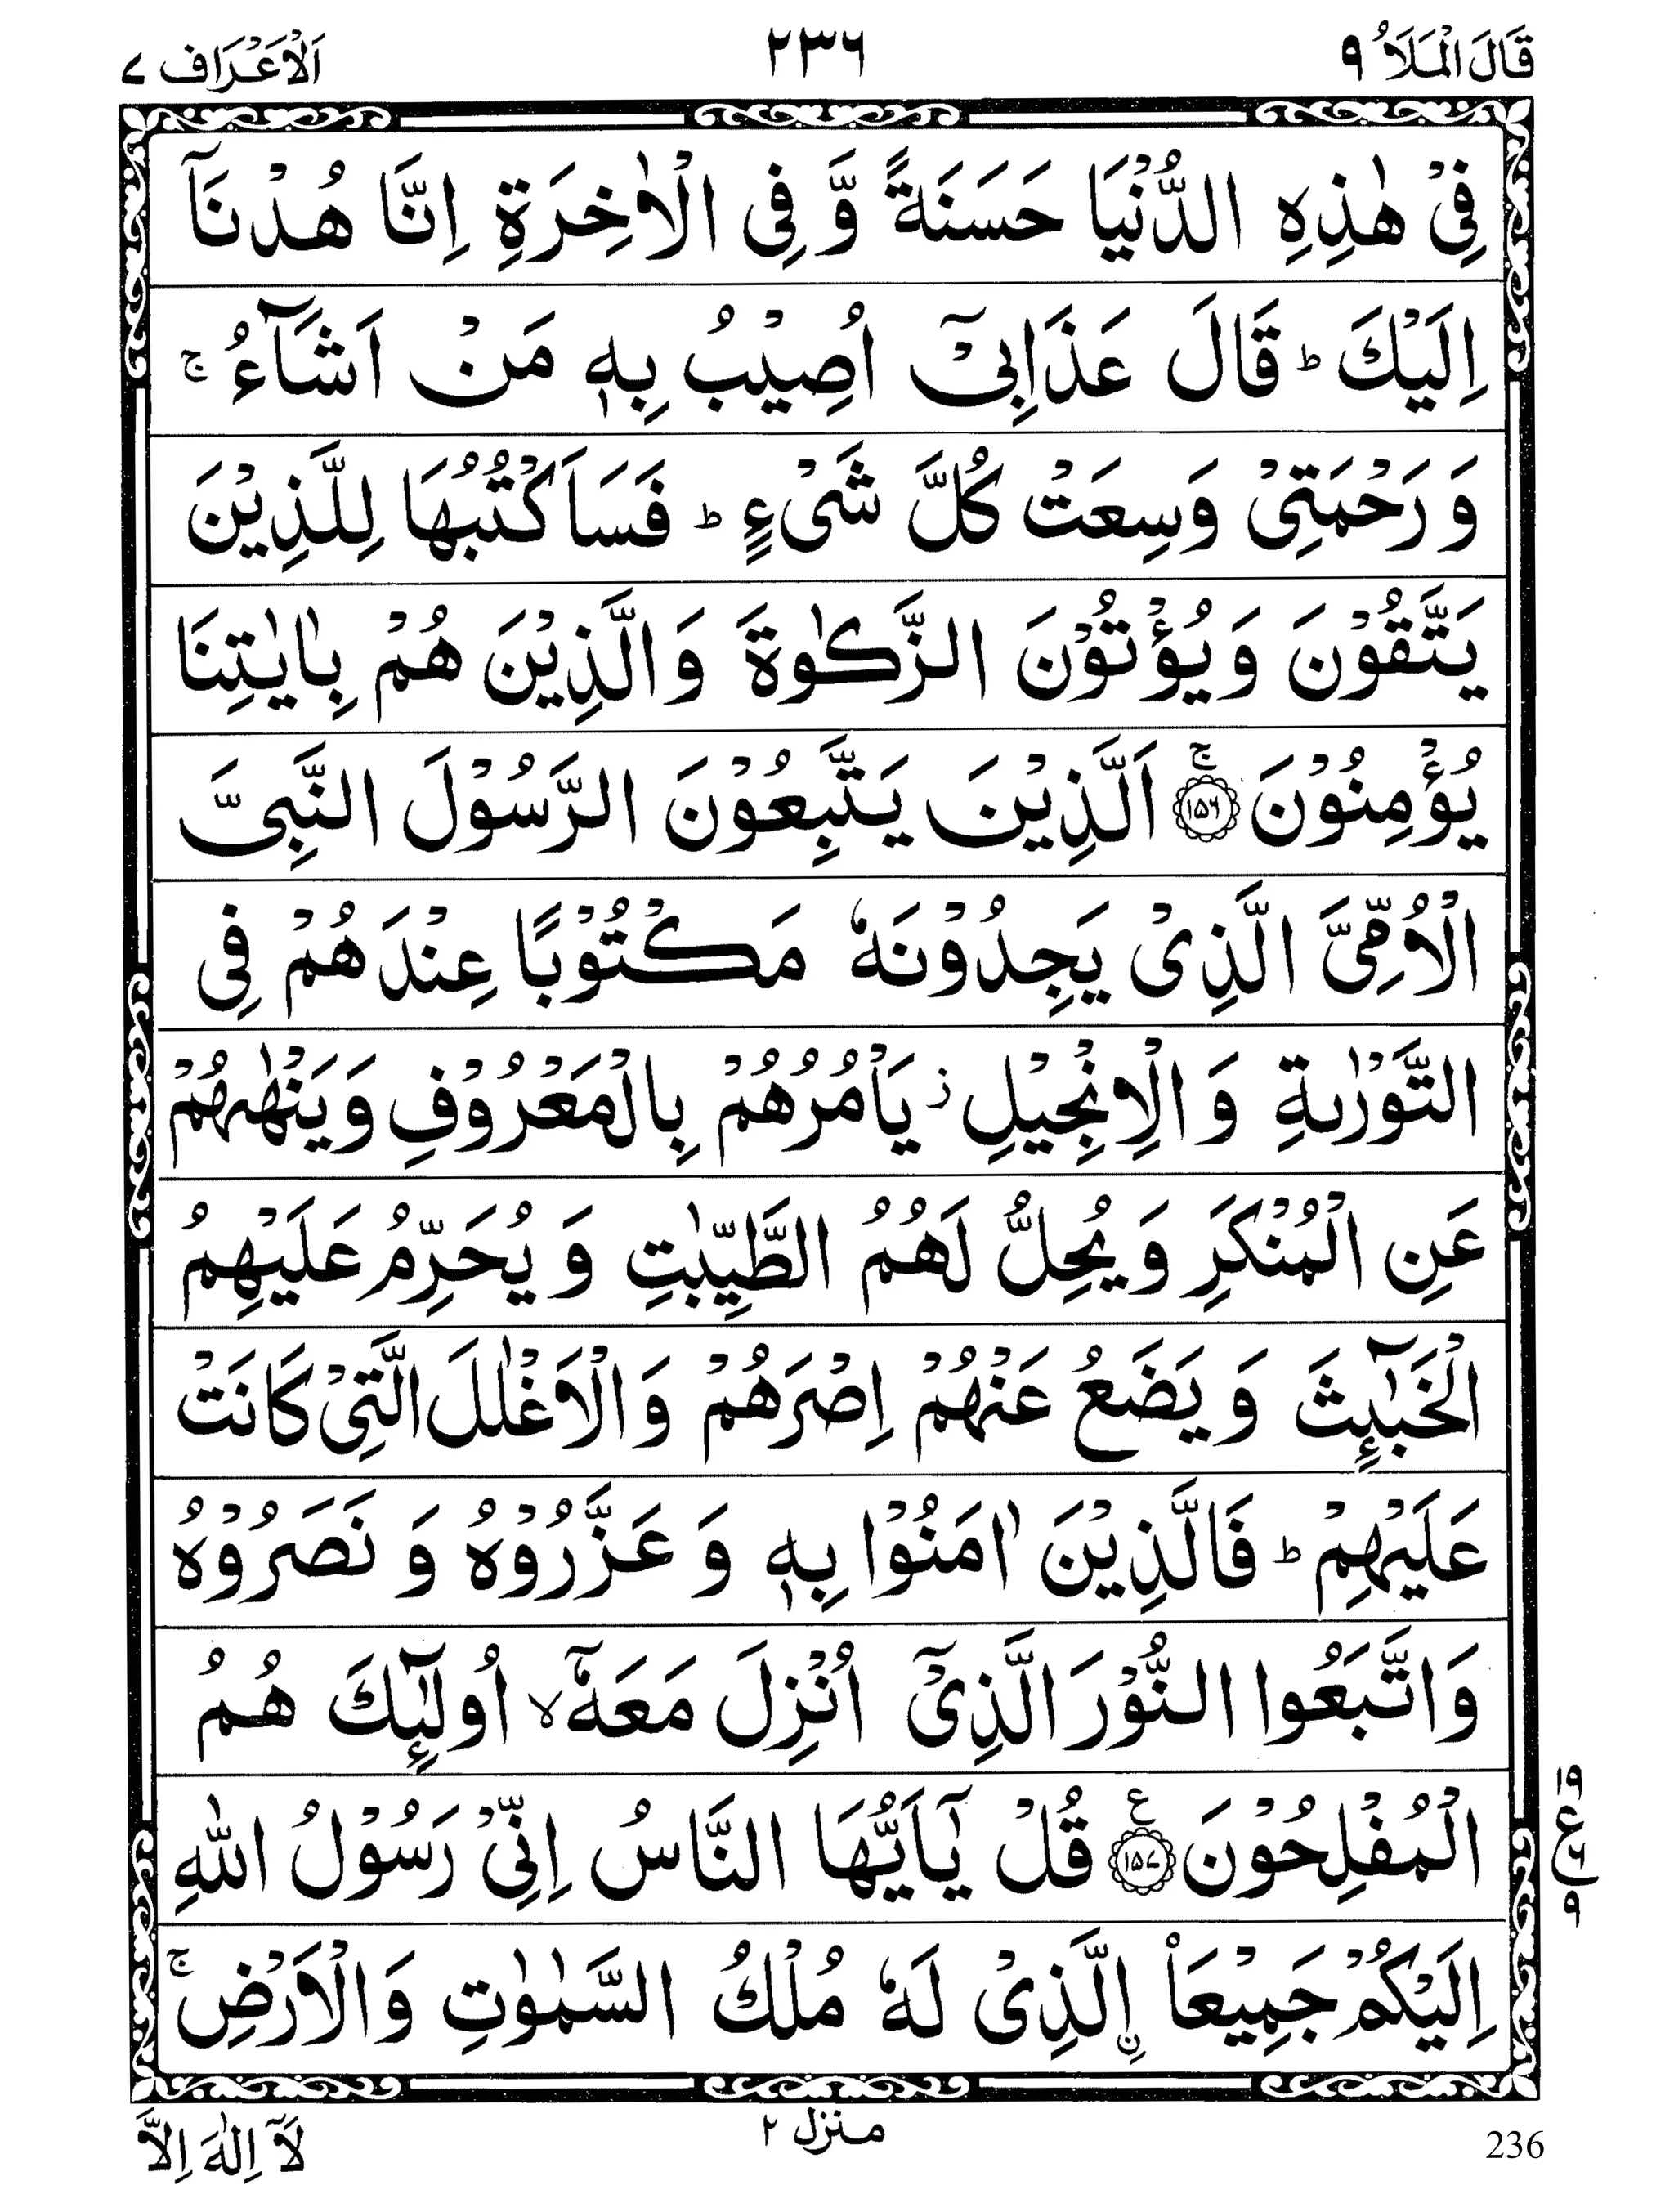 قَالَ الْمَلَاُ ٩
٢٣٦
اَلْاَعْرَاف ٧
فِیْ هٰذِهِ الدُّنْیَا حَسَنَةً وَّ فِی الْاٰخِرَةِ اِنَّا هُدْنَاۤ
اِلَیْكَ ؕ قَالَ عَذَابِیْۤ اُصِیْبُ بِهٖ مَنْ اَشَآءُ ۚ
وَ رَحْمَتِیْ وَسِعَتْ كُلَّ شَیْءٍ ؕ فَسَاَكْتُبُهَا لِلَّذِیْنَ
یَتَّقُوْنَ وَ یُؤْتُوْنَ الزَّكٰوةَ وَالَّذِیْنَ هُمْ بِاٰیٰتِنَا
یُؤْمِنُوْنَ ۚ ﴿١٥٦﴾ اَلَّذِیْنَ یَتَّبِعُوْنَ الرَّسُوْلَ النَّبِیَّ
الْاُمِّیَّ الَّذِیْ یَجِدُوْنَهٗ مَكْتُوْبًا عِنْدَهُمْ فِی
التَّوْرٰىةِ وَ الْاِنْجِیْلِ ؗ یَاْمُرُهُمْ بِالْمَعْرُوْفِ وَیَنْهٰىهُمْ
عَنِ الْمُنْكَرِ وَ یُحِلُّ لَهُمُ الطَّیِّبٰتِ وَ یُحَرِّمُ عَلَیْهِمُ
الْخَبٰٓىِٕثَ وَ یَضَعُ عَنْهُمْ اِصْرَهُمْ وَ الْاَغْلٰلَ الَّتِیْ كَانَتْ
عَلَیْهِمْ ؕ فَالَّذِیْنَ اٰمَنُوْا بِهٖ وَ عَزَّرُوْهُ وَ نَصَرُوْهُ
وَاتَّبَعُوا النُّوْرَ الَّذِیْۤ اُنْزِلَ مَعَهٗۤ ۙ اُولٰٓىِٕكَ هُمُ
الْمُفْلِحُوْنَ ﴿١٥٧﴾ ع قُلْ یٰۤاَیُّهَا النَّاسُ اِنِّیْ رَسُوْلُ اللّٰهِ
اِلَیْكُمْ جَمِیْعَاْ ِ۟الَّذِیْ لَهٗ مُلْكُ السَّمٰوٰتِ وَالْاَرْضِ ۚ
١٩
ع ٦
٩
لَاۤ اِلٰهَ اِلَّا
منزل ٢
236